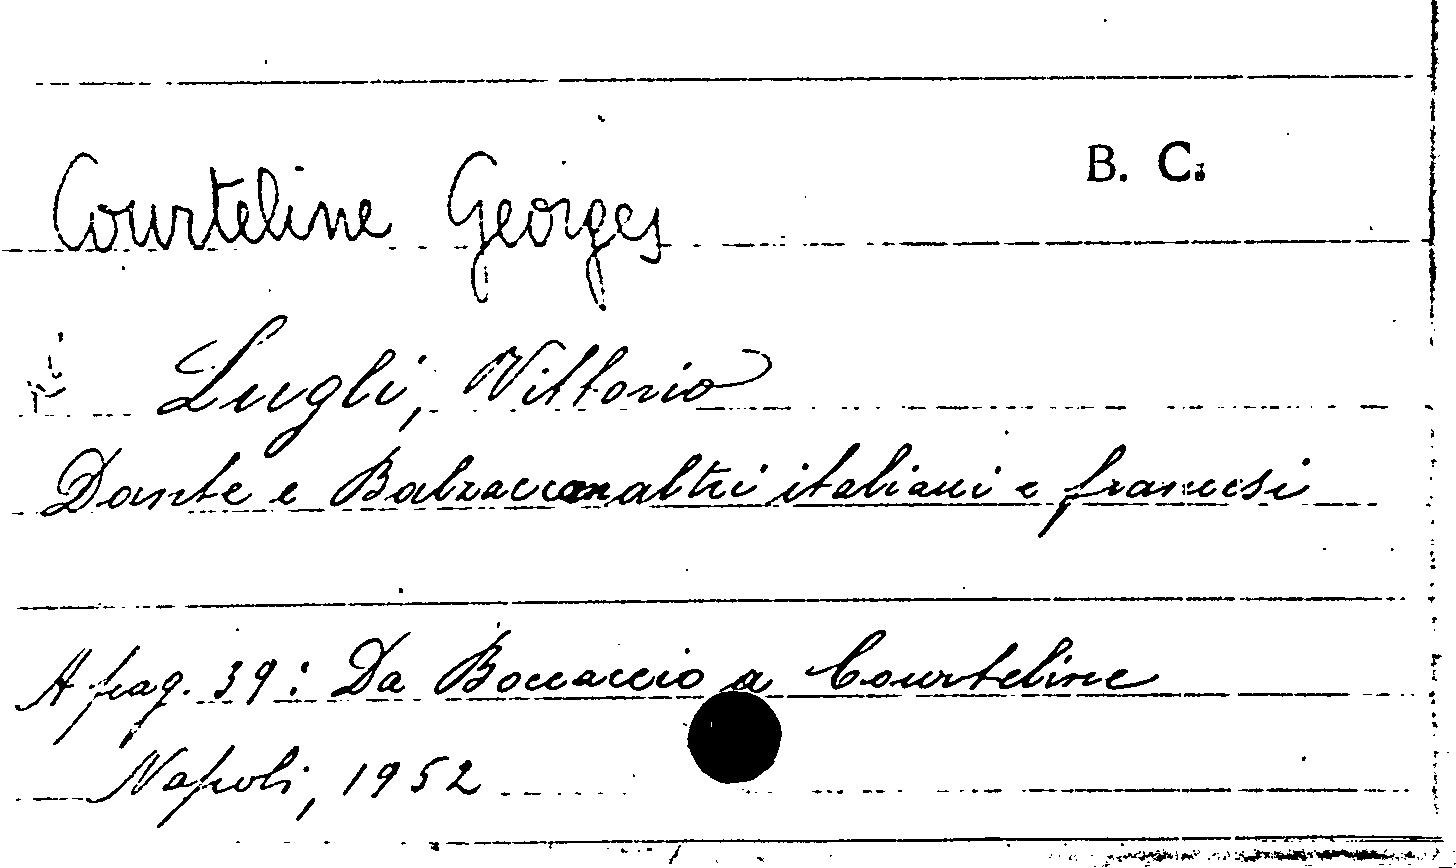 B. C.
Courteline Georges
Lugli, Vittorio
Dante e Balzac con altri italiani e francesi
A pag. 39: Da Boccaccio a Courteline
Napoli, 1952